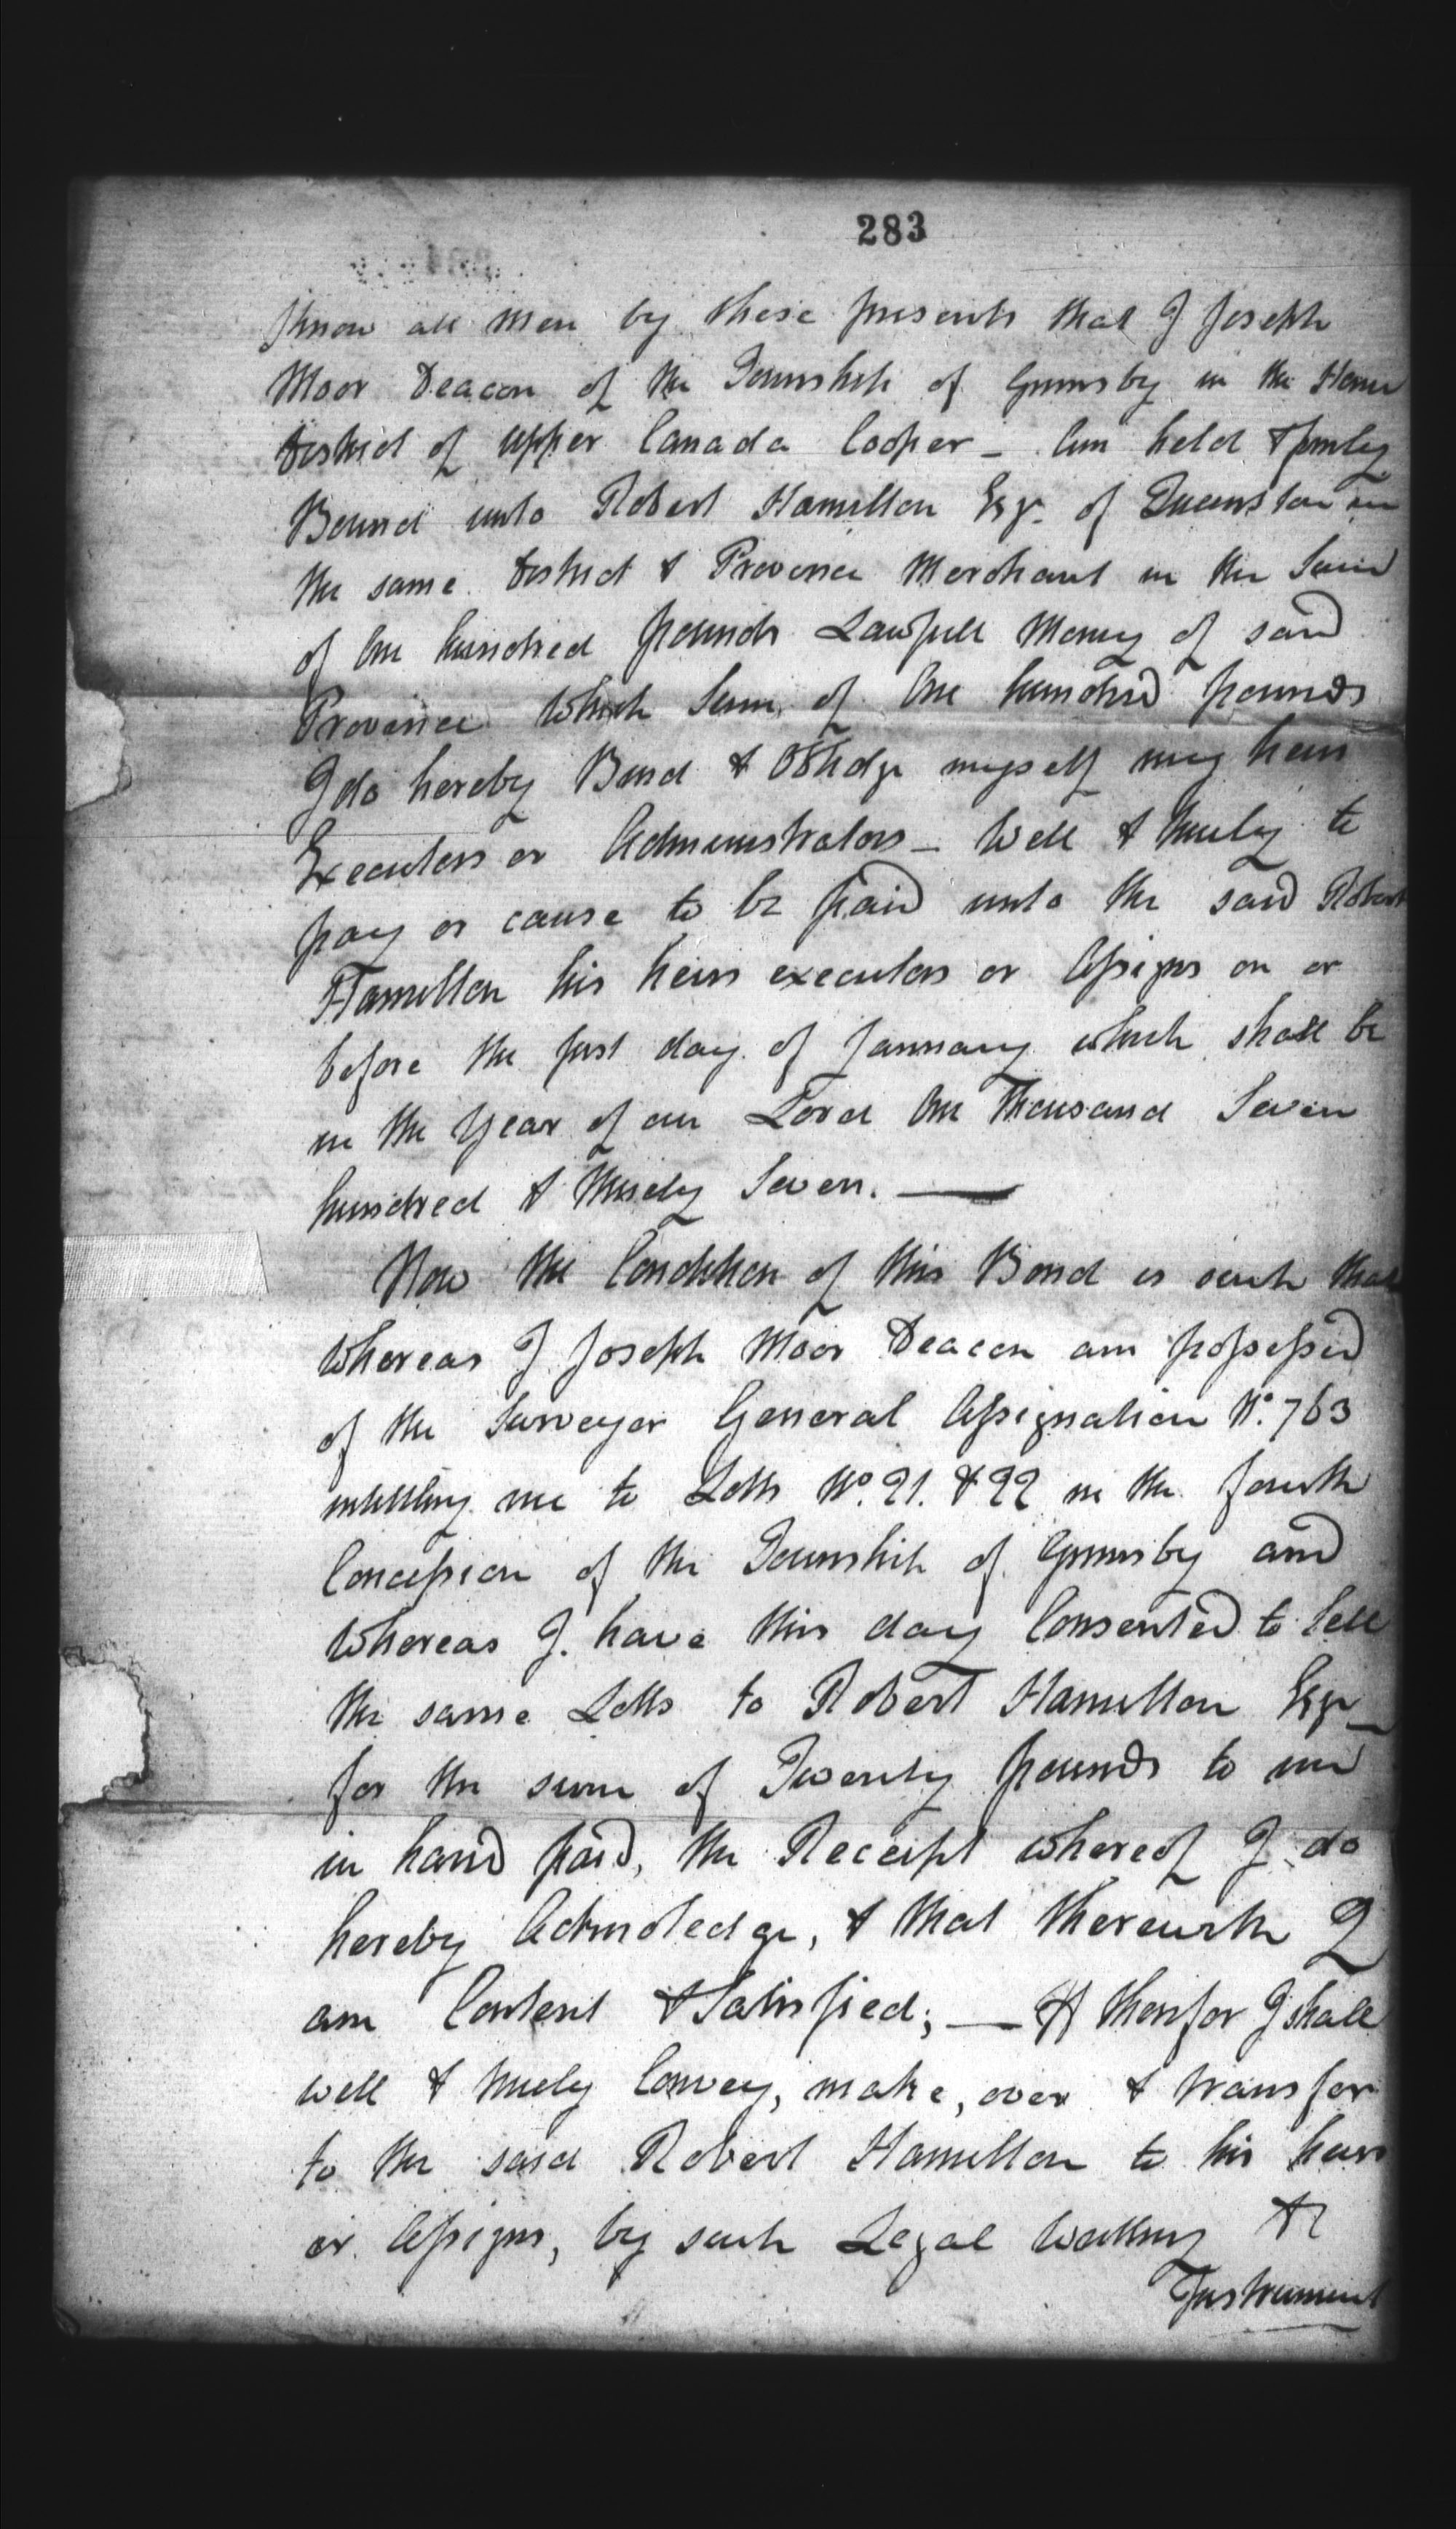 283
Know all Men by these presents that I Joseph
Moor Deacon of the Township of Grimsby in the Home
District of Upper Canada Cooper - Am held & firmly
Bound unto Robert Hamilton Esqr. of Queenston in
the same District & Province Merchant in the Sum
of One hundred pounds Lawfull Money of said
Province which Sum, of One hundred pounds
I do hereby Bind & Oblidge myself my heirs
Executors or Administrators - Well & truely to
pay or cause to be paid unto the said Robert
Hamilton his heirs executors or Assigns on or
before the first day of January which shall be
in the Year of our Lord One Thousand Seven
hundred & Ninety Seven. —
Now the Condition of this Bond is such that
Whereas I Joseph Moor Deacon am possessed
of the Surveyor General Assignation No. 763
intitling me to Lotts No. 21. & 22 in the fourth
Concession of the Township of Grimsby and
Whereas I have this day Consented to Sell
the same Lotts to Robert Hamilton Esqr
for the sum of Twenty pounds to me
in hand paid, the Receipt whereof I do
hereby Acknoledge, & that therewith I
am Content & Satisfied; — If therefor I shall
well & truely Convey, make, over & transfer
to the said Robert Hamilton to his heirs
or Assigns, by such Legal Writting
Instrument